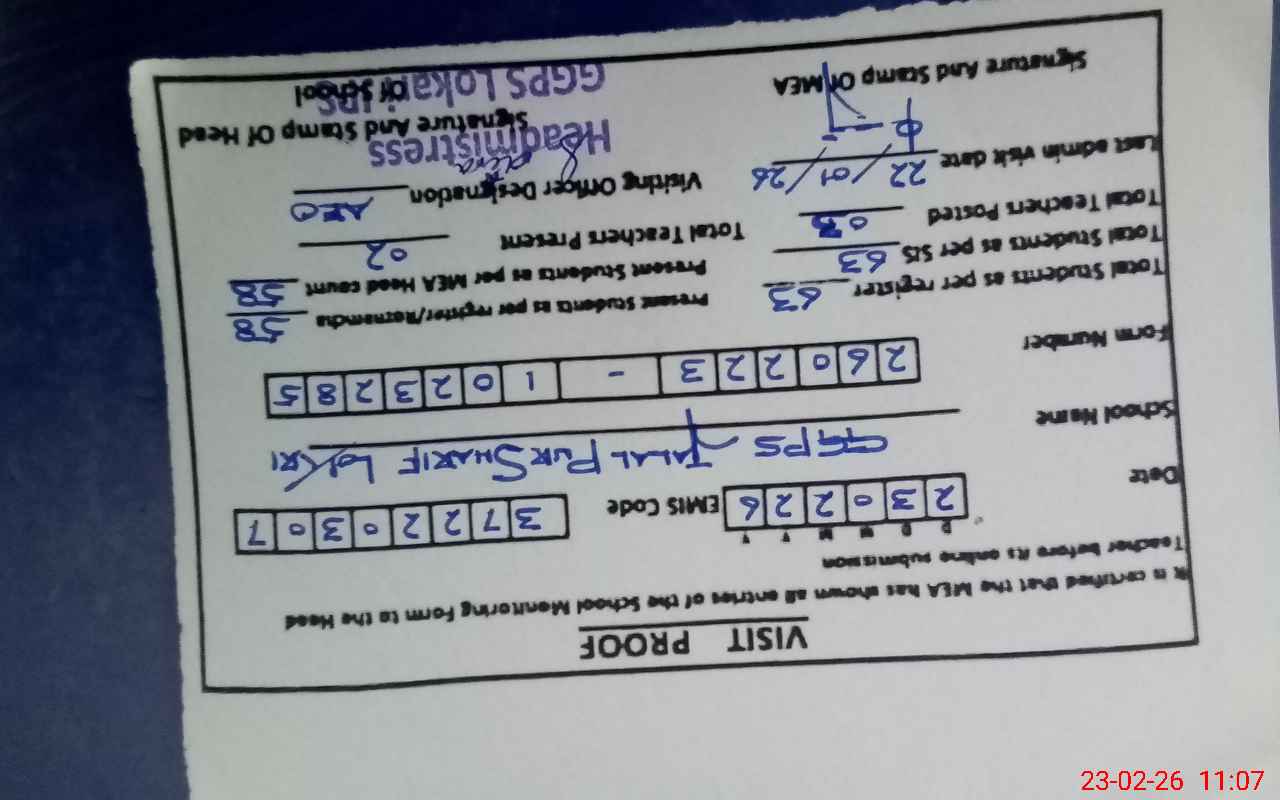 VISIT PROOF
It is certified that the MEA has shown all entries of the School Monitoring Form to the Head
Teacher before its online submission
D D M M Y Y
Date 2 3 0 2 2 6 EMIS Code 3 7 2 2 0 3 0 7
School Name GGPS JALAL PUR SHARIF LOKRI
Form Number 2 6 0 2 2 3 - 1 0 2 3 2 8 5
Total Students as per register 63 Present Students as per register/Roznamcha 58
Total Students as per SIS 63 Present Students as per MEA Head count 58
Total Teachers Posted 03 Total Teachers Present 02
Last admin visit date 22/01/26 Visiting Officer Designation AEO
Headmistress
Signature And Stamp Of MEA Signature And Stamp Of Head
Of School
GGPS Lokari JPS
23-02-26 11:07